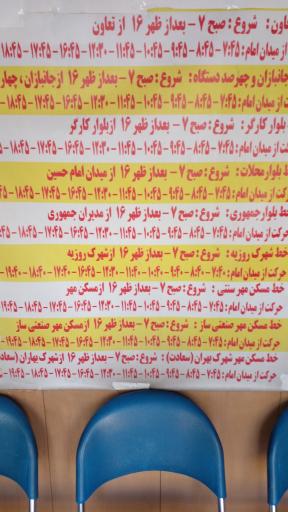 تعاون : شروع : صبح ۷ - بعداز ظهر ۱۶ از تعاون
از میدان امام : ۷:۴۵ - ۸:۴۵ - ۹:۴۵ - ۱۰:۴۵ - ۱۱:۴۵ - ۱۲:۳۰ - ۱۶:۴۵ - ۱۷:۴۵ - ۱۸:۴۵
جانبازان و چهرصد دستگاه : شروع : صبح ۷ - بعداز ظهر ۱۶ از جانبازان ، چهار
از میدان امام : ۷:۴۵ - ۸:۴۵ - ۹:۴۵ - ۱۰:۴۵ - ۱۱:۴۵ - ۱۲:۳۰ - ۱۶:۴۵ - ۱۷:۴۵ - ۱۸:۴۵
بلوار کارگر : شروع : صبح ۷ - بعداز ظهر ۱۶ از بلوار کارگر
از میدان امام : ۷:۴۵ - ۸:۴۵ - ۹:۴۵ - ۱۰:۴۵ - ۱۱:۴۵ - ۱۲:۳۰ - ۱۶:۴۵ - ۱۷:۴۵ - ۱۸:۴۵
بلوار محلات : شروع : صبح ۷ - بعداز ظهر ۱۶ از میدان امام حسین
از میدان امام : ۷:۴۵ - ۸:۴۵ - ۹:۴۵ - ۱۰:۴۵ - ۱۱:۴۵ - ۱۲:۳۰ - ۱۶:۴۵ - ۱۷:۴۵
خط بلوار جمهوری : شروع : صبح ۷ - بعداز ظهر ۱۶ از مدیران جمهوری
حرکت از میدان امام : ۷:۴۵ - ۸:۴۵ - ۹:۴۵ - ۱۰:۴۵ - ۱۱:۴۵ - ۱۲:۳۰ - ۱۶:۴۵ - ۱۷:۴۵
خط شهرک روزیه : شروع : صبح ۷ - بعداز ظهر ۱۶ از شهرک روزیه
حرکت از میدان امام : ۷:۴۰ - ۸:۴۰ - ۹:۴۰ - ۱۰:۴۰ - ۱۱:۴۰ - ۱۲:۳۰ - ۱۶:۴۰ - ۱۷:۴۰ - ۱۸:۴۰ - ۱۹:۴۰
خط مسکن مهر سنتی : شروع : صبح ۷ - بعداز ظهر ۱۶ از مسکن مهر
حرکت از میدان امام : ۷:۴۵ - ۸:۴۵ - ۹:۴۵ - ۱۰:۴۵ - ۱۱:۴۵ - ۱۲:۳۰ - ۱۶:۴۵ - ۱۷:۴۵ - ۱۸:۴۵ - ۱۹:۴۵
خط مسکن مهر صنعتی ساز : شروع : صبح ۷ - بعداز ظهر ۱۶ از مسکن مهر صنعتی ساز
حرکت از میدان امام : ۷:۴۵ - ۸:۴۵ - ۹:۴۵ - ۱۰:۴۵ - ۱۱:۴۵ - ۱۲:۳۰ - ۱۶:۴۵ - ۱۷:۴۵ - ۱۸:۴۵ - ۱۹:۴۵
خط مسکن مهر شهرک بهاران (سعادت) : شروع : صبح ۷ - بعداز ظهر ۱۶ از شهرک بهاران (سعادت
حرکت از میدان امام : ۷:۴۵ - ۸:۴۵ - ۹:۴۵ - ۱۰:۴۵ - ۱۱:۴۵ - ۱۲:۳۰ - ۱۶:۴۵ - ۱۷:۴۵ - ۱۸:۴۵ - ۱۹:۴۵